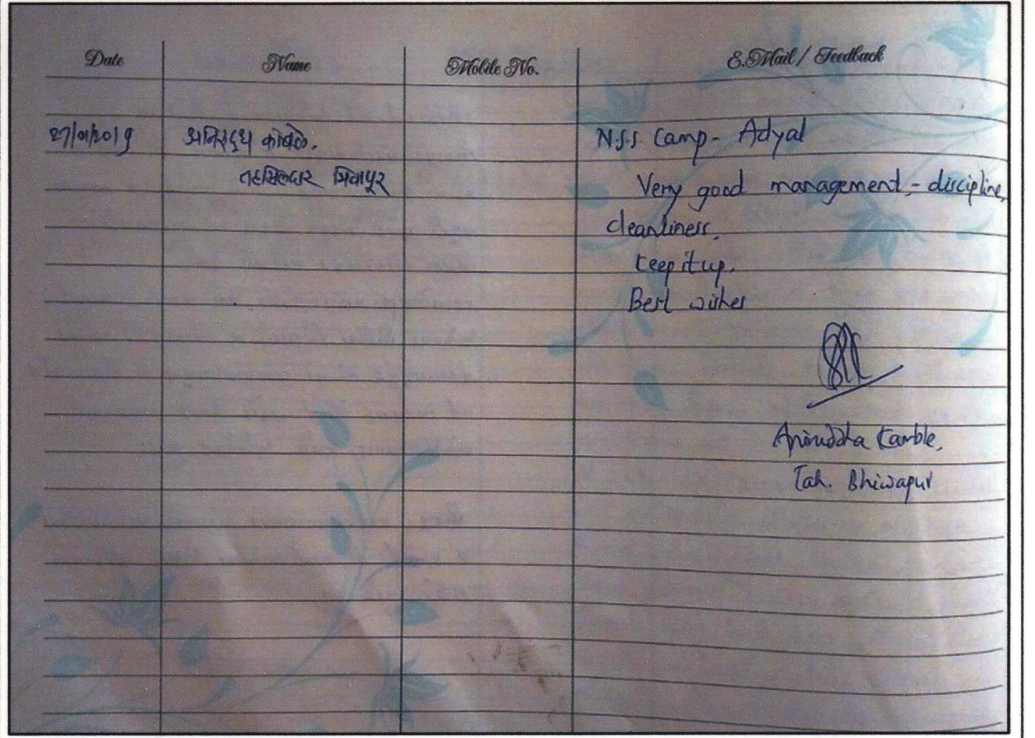 Date Name Mobile No. E.Mail / Feedback
27/01/2019 अनिरुद्ध कांबळे. N.S.S Camp - Adyal
तहसिलदार भिवापूर Very good management, - discipline,
cleanliness,
keep it up.
Best wishes
Aniruddha Kamble,
Tah. Bhiwapur